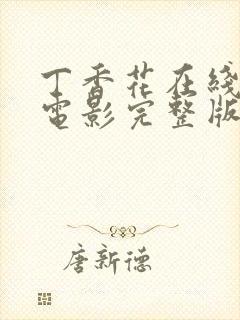 丁香花在线
电影完整版
唐新德